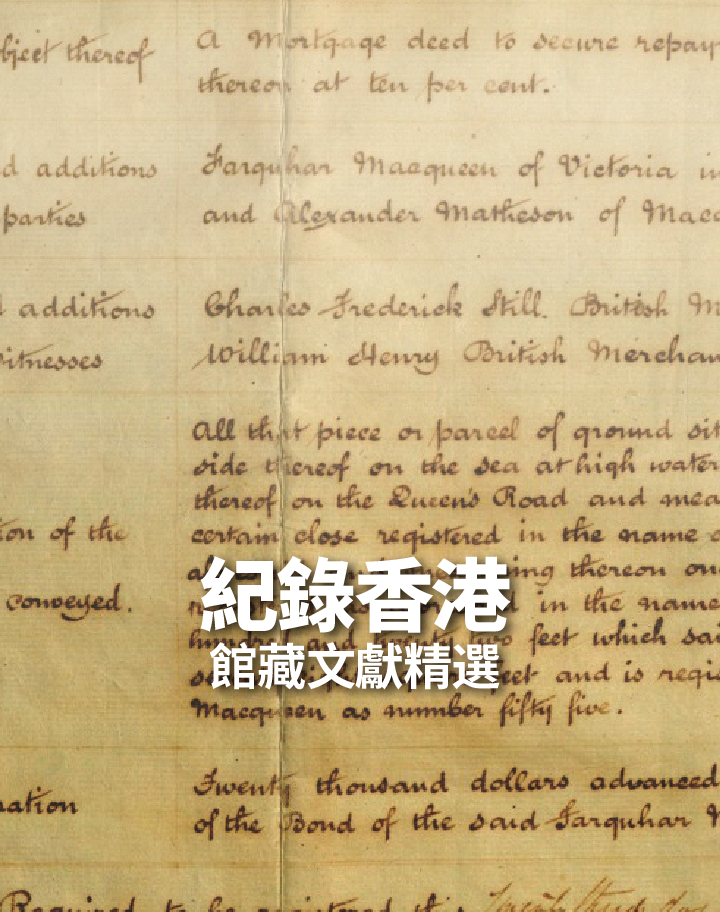 bject thereof A Mortgage deed to secure repay
thereon at ten per cent.
d additions Farquhar Macqueen of Victoria in
parties and Alexander Matheson of Maca
additions Charles Frederick Still. British M
itnesses William Henry British Merchan
All that piece or parcel of ground sit
side thereof on the sea at high water
thereof on the Queen's Road and mea
tion of the certain close registered in the name o
ing thereon on
紀錄香港
conveyed. in the name
hundred and twenty two feet which sai
館藏文獻精選
feet and is regis
Macqueen as number fifty five.
Twenty thousand dollars advanced
nation of the Bond of the said Farquhar M
Required to be registered this